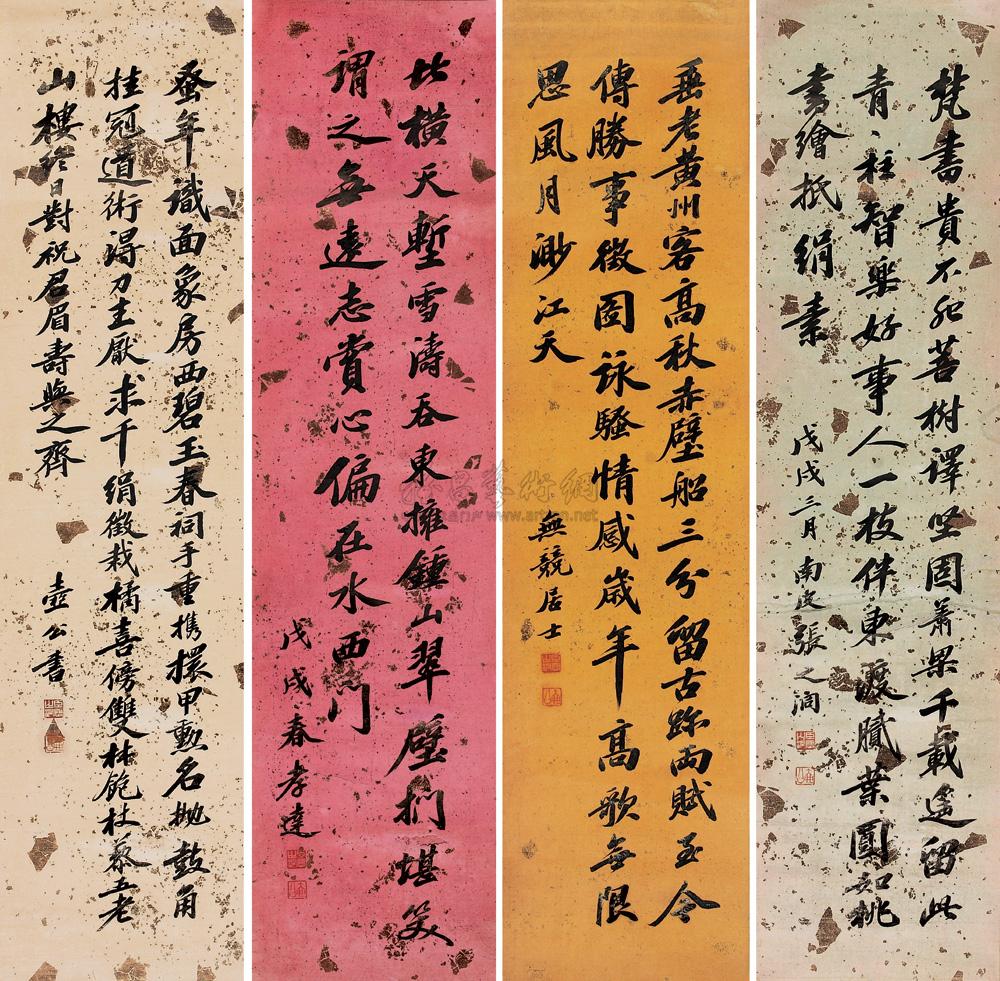 梵書貴不如菩樹譯堅固蕭梁千載遙留此
青〻柱智樂好事人一枝伴東渡膩葉圓如桃
書繪抵絹素
戊戌三月南皮張之洞
垂老黃州客高秋赤壁船三分留古跡兩賦至今
傳勝事徵圖詠騷情感歲年高歌無限
思風月渺江天
無競居士
此橫天塹雪濤吞東擁鍾山翠壁捫堪笑
謂之無遠志賞心偏在水西門
戊戌春孝達
蚤年識面象房西碧玉春祠手重攜擐甲勳名拋鼓角
挂冠道術得刀圭厭求千絹徵栽橘喜傍雙林飽杖藜五老
山樓終日對祝君眉壽與之齊
壺公書
www.artron.net